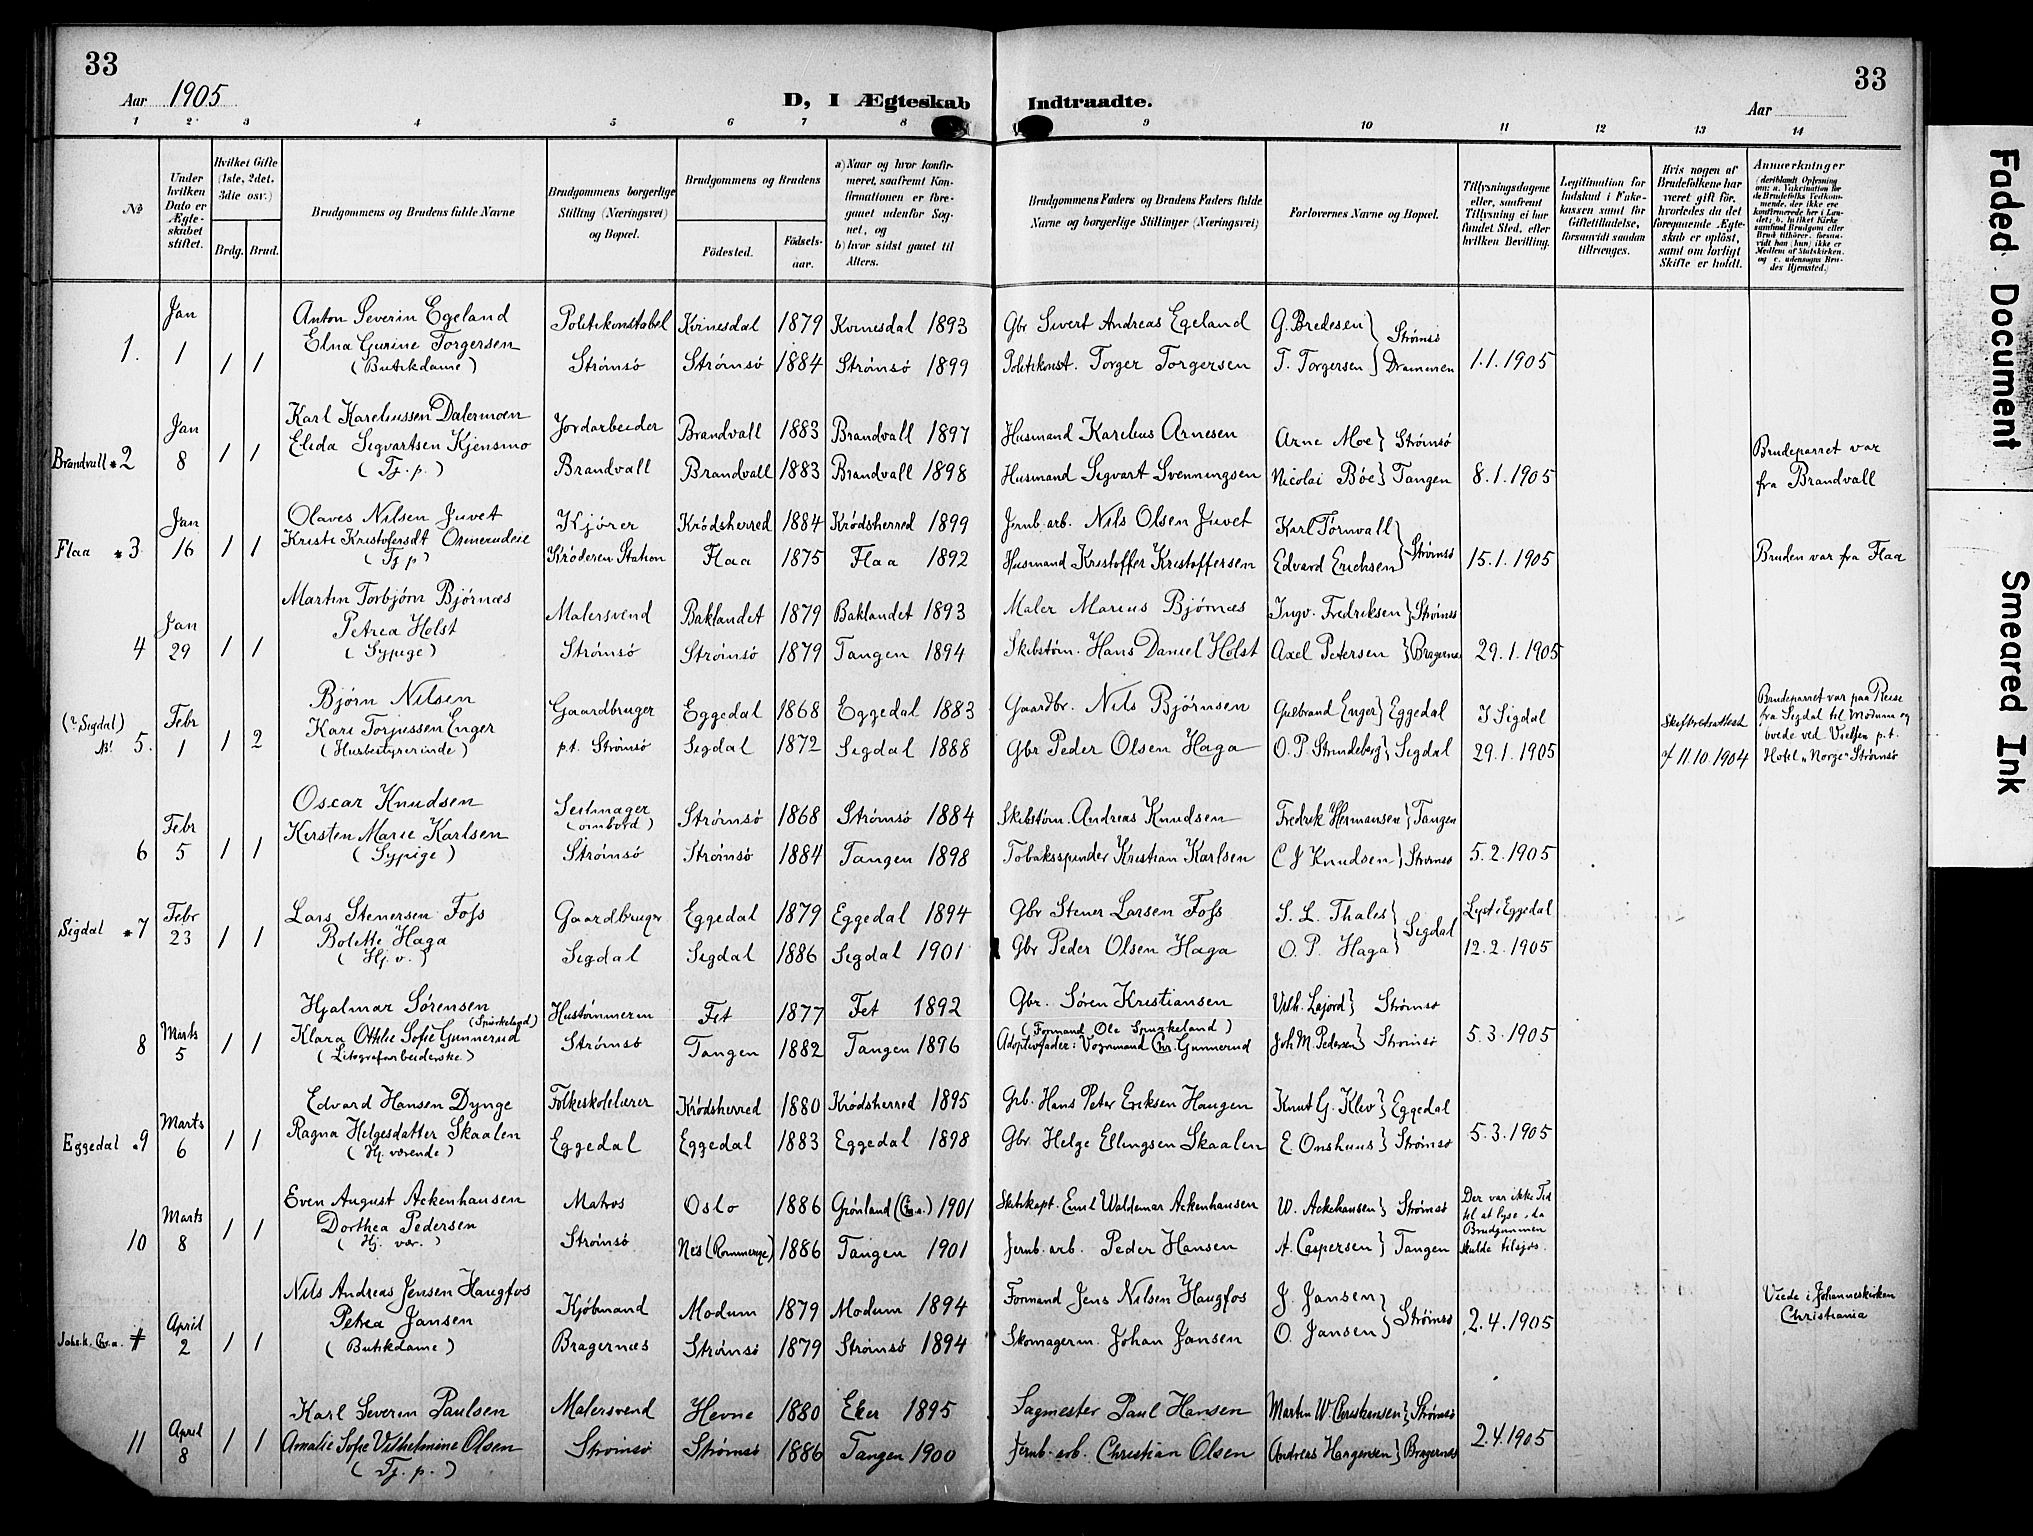 33
33
Aar 1905
D, I Ægteskab Indtraadte.
Aar
1 2 3 4 5 6 7 8 9 10 11 12 13 14
№
Under hvilken Dato er Ægteskabet stiftet.
Hvilket Gifte (1ste, 2det. 3die osv.)
Brdg. Brud.
Brudgommens og Brudens fulde Navne
Brudgommens borgerlige Stilling (Næringsvei) og Bopæl.
Brudgommens og Brudens
Födested. Födsels-aar.
a) Naar og hvor konfirmeret, saafremt Konfirmationen er foregaaet udenfor Sognet, og
b) hvor sidst gaaet til Alters.
Brudgommens Faders og Brudens Faders fulde Navne og borgerlige Stillinger (Næringsvei)
Forlovernes Navne og Bopæl.
Tillysningsdagene eller, saafremt Tillysning ei har fundet Sted, efter hvilken Bevilling.
Legitimation for Indskud i Enkekassen samt for Giftetilladelse, forsaavidt saadan tiltrænges.
Hvis nogen af Brudefolkene har været gift før, hvorledes da det foregaaende Ægteskab er oplöst, samt om lovligt Skifte er holdt.
Anmerkninger
Jan Anton Severin Egeland Politikonstabel Kvinesdal 1879 Kvinesdal 1893 Gbr Sivert Andreas Egeland G. Bredesen } Strømsö
1. 1 1 1 Elna Gurine Torgersen (Butikdame) Strømsö Strømsö 1884 Strømsö 1899 Politikonst. Torger Torgersen T. Torgersen } Drammen 1.1.1905
Jan Karl Kareliussen Dalermoen Jordarbeider Brandvall 1883 Brandvall 1897 Husmand Karelius Arnesen Arne Moe } Strømsö
Brandvall * 2 8 1 1 Elida Sigvartsen Kjensmo (Tj. p.) Brandvall Brandvall 1883 Brandvall 1898 Husmand Sigvart Svenningsen Nicolai Böe } Tangen 8.1.1905 Brudeparret var fra Brandvall
Jan Olaves Nilsen Juvet Kjörer Krödsherred 1884 Krödsherred 1899 Jernb. arb. Nils Olsen Juvet Karl Tornvall
Flaa * 3 16 1 1 Kristi Kristofersdt Ormerudeie (Tj p) Kröderen Station Flaa 1875 Flaa 1892 Husmand Kristoffer Kristoffersen Edvard Erichsen } Strømsö 15.1.1905 Bruden var fra Flaa
Jan Martin Torbjørn Bjørnæs Malersvend Baklandet 1879 Baklandet 1893 Maler Marius Bjørnæs Ingv. Fredriksen } Strømsö
4 29 1 1 Petrea Holst (Sypige) Strømsö Strømsö 1879 Tangen 1894 Skibstøm. Hans Daniel Holst Axel Petersen } Bragernæs 29.1.1905
(? Sigdal) Febr Bjørn Nilsen Gaardbruger Eggedal 1868 Eggedal 1883 Gaardbr. Nils Bjørnsen Gulbrand Enger } Eggedal I Sigdal Skifteretsattest
5. 1 1 2 Kari Torjussen Enger (Husbestyrerinde) p.t. Strømsö Sigdal 1872 Sigdal 1888 Gbr Peder Olsen Haga O. P. Strandeberg } Sigdal 29.1.1905 af 11.10.1904
Brudeparret var paa Reise
fra Sigdal til Modum og
boede ved Vielsen p.t.
Hotel „Norge“ Strømsö
Febr Oscar Knudsen Seilmager (ombord) Strømsö 1868 Strømsö 1884 Skibstøm. Andreas Knudsen Fredrik Hermansen } Tangen
6 5 1 1 Kirsten Marie Karlsen (Sypige) Strømsö Strømsö 1884 Tangen 1898 Tobaksspinder Kristian Karlsen C J Knudsen } Strømsö 5.2.1905
Febr Lars Stenersen Foss Gaardbruger Eggedal 1879 Eggedal 1894 Gbr Stener Larsen Foss S. L. Thales Lyst i Eggedal
Sigdal * 7 23 1 1 Bolette Haga (Hj. v.) Sigdal Sigdal 1886 Sigdal 1901 Gbr Peder Olsen Haga O. P. Haga } Sigdal 12.2.1905
Hjalmar Sørensen Hustømmerm Fet 1877 Fet 1892 Gbr. Søren Kristiansen Vilh. Lajord } Strømsö
Marts (Spirkeland) (Formand Ole Spirkeland)
8 5 1 1 Klara Othlie Sofie Gunnerud (Litografarbeiderske) Strømsö Tangen 1882 Tangen 1896 Adoptivfader: Vognmand Chr. Gunnerud Joh M. Pedersen } Strømsö 5.3.1905
Marts Edvard Hansen Dynge Folkeskolelærer Krödsherred 1880 Krödsherred 1895 Grb. Hans Peter Eriksen Haugen Knut G. Klev } Eggedal
Eggedal . 9 6 1 1 Ragna Helgesdatter Skaalen (Hj. værende) Eggedal Eggedal 1883 Eggedal 1898 Gbr Helge Ellingsen Skaalen E. Onshuus } Strømsö 5.3.1905
Marts Even August Ackenhausen Matros Oslo 1886 Grønland (Chr.a.) 1901 Skibskapt. Emil Waldemar Ackenhausen W. Ackehausen } Strømsö
10 8 1 1 Dorthea Pedersen (Hj. vær.) Strømsö Nes (Rommerige) 1886 Tangen 1901 Jernb. arb. Peder Hansen A. Caspersen } Tangen
Der var ikke Tid
til at lyse, da
Brudgommen
skulde tilsjøs.
April Nils Andreas Jensen Haugfos Kjøbmand Modum 1879 Modum 1894 Formand Jens Nilsen Haugfos J. Jansen Viede i Johanneskirken
Johs.k. Chr.a. # 2 1 1 Petrea Jansen (Butikdame) Bragernæs Strømsö 1879 Strømsö 1894 Skomagerm. Johan Jansen O. Jansen } Strømsö 2.4.1905 Christiania
April Karl Severin Paulsen Malersvend Hevne 1880 Eker 1895 Sagmester Paul Hansen Martin W Christiansen } Strømsö
11 8 1 1 Amalie Sofie Vilhelmine Olsen (Tj. p.) Strømsö Strømsö 1886 Tangen 1900 Jernb. arb. Christian Olsen Andreas Hangensen } Bragernæs 2.4.1905
Faded Document
Smeared Ink